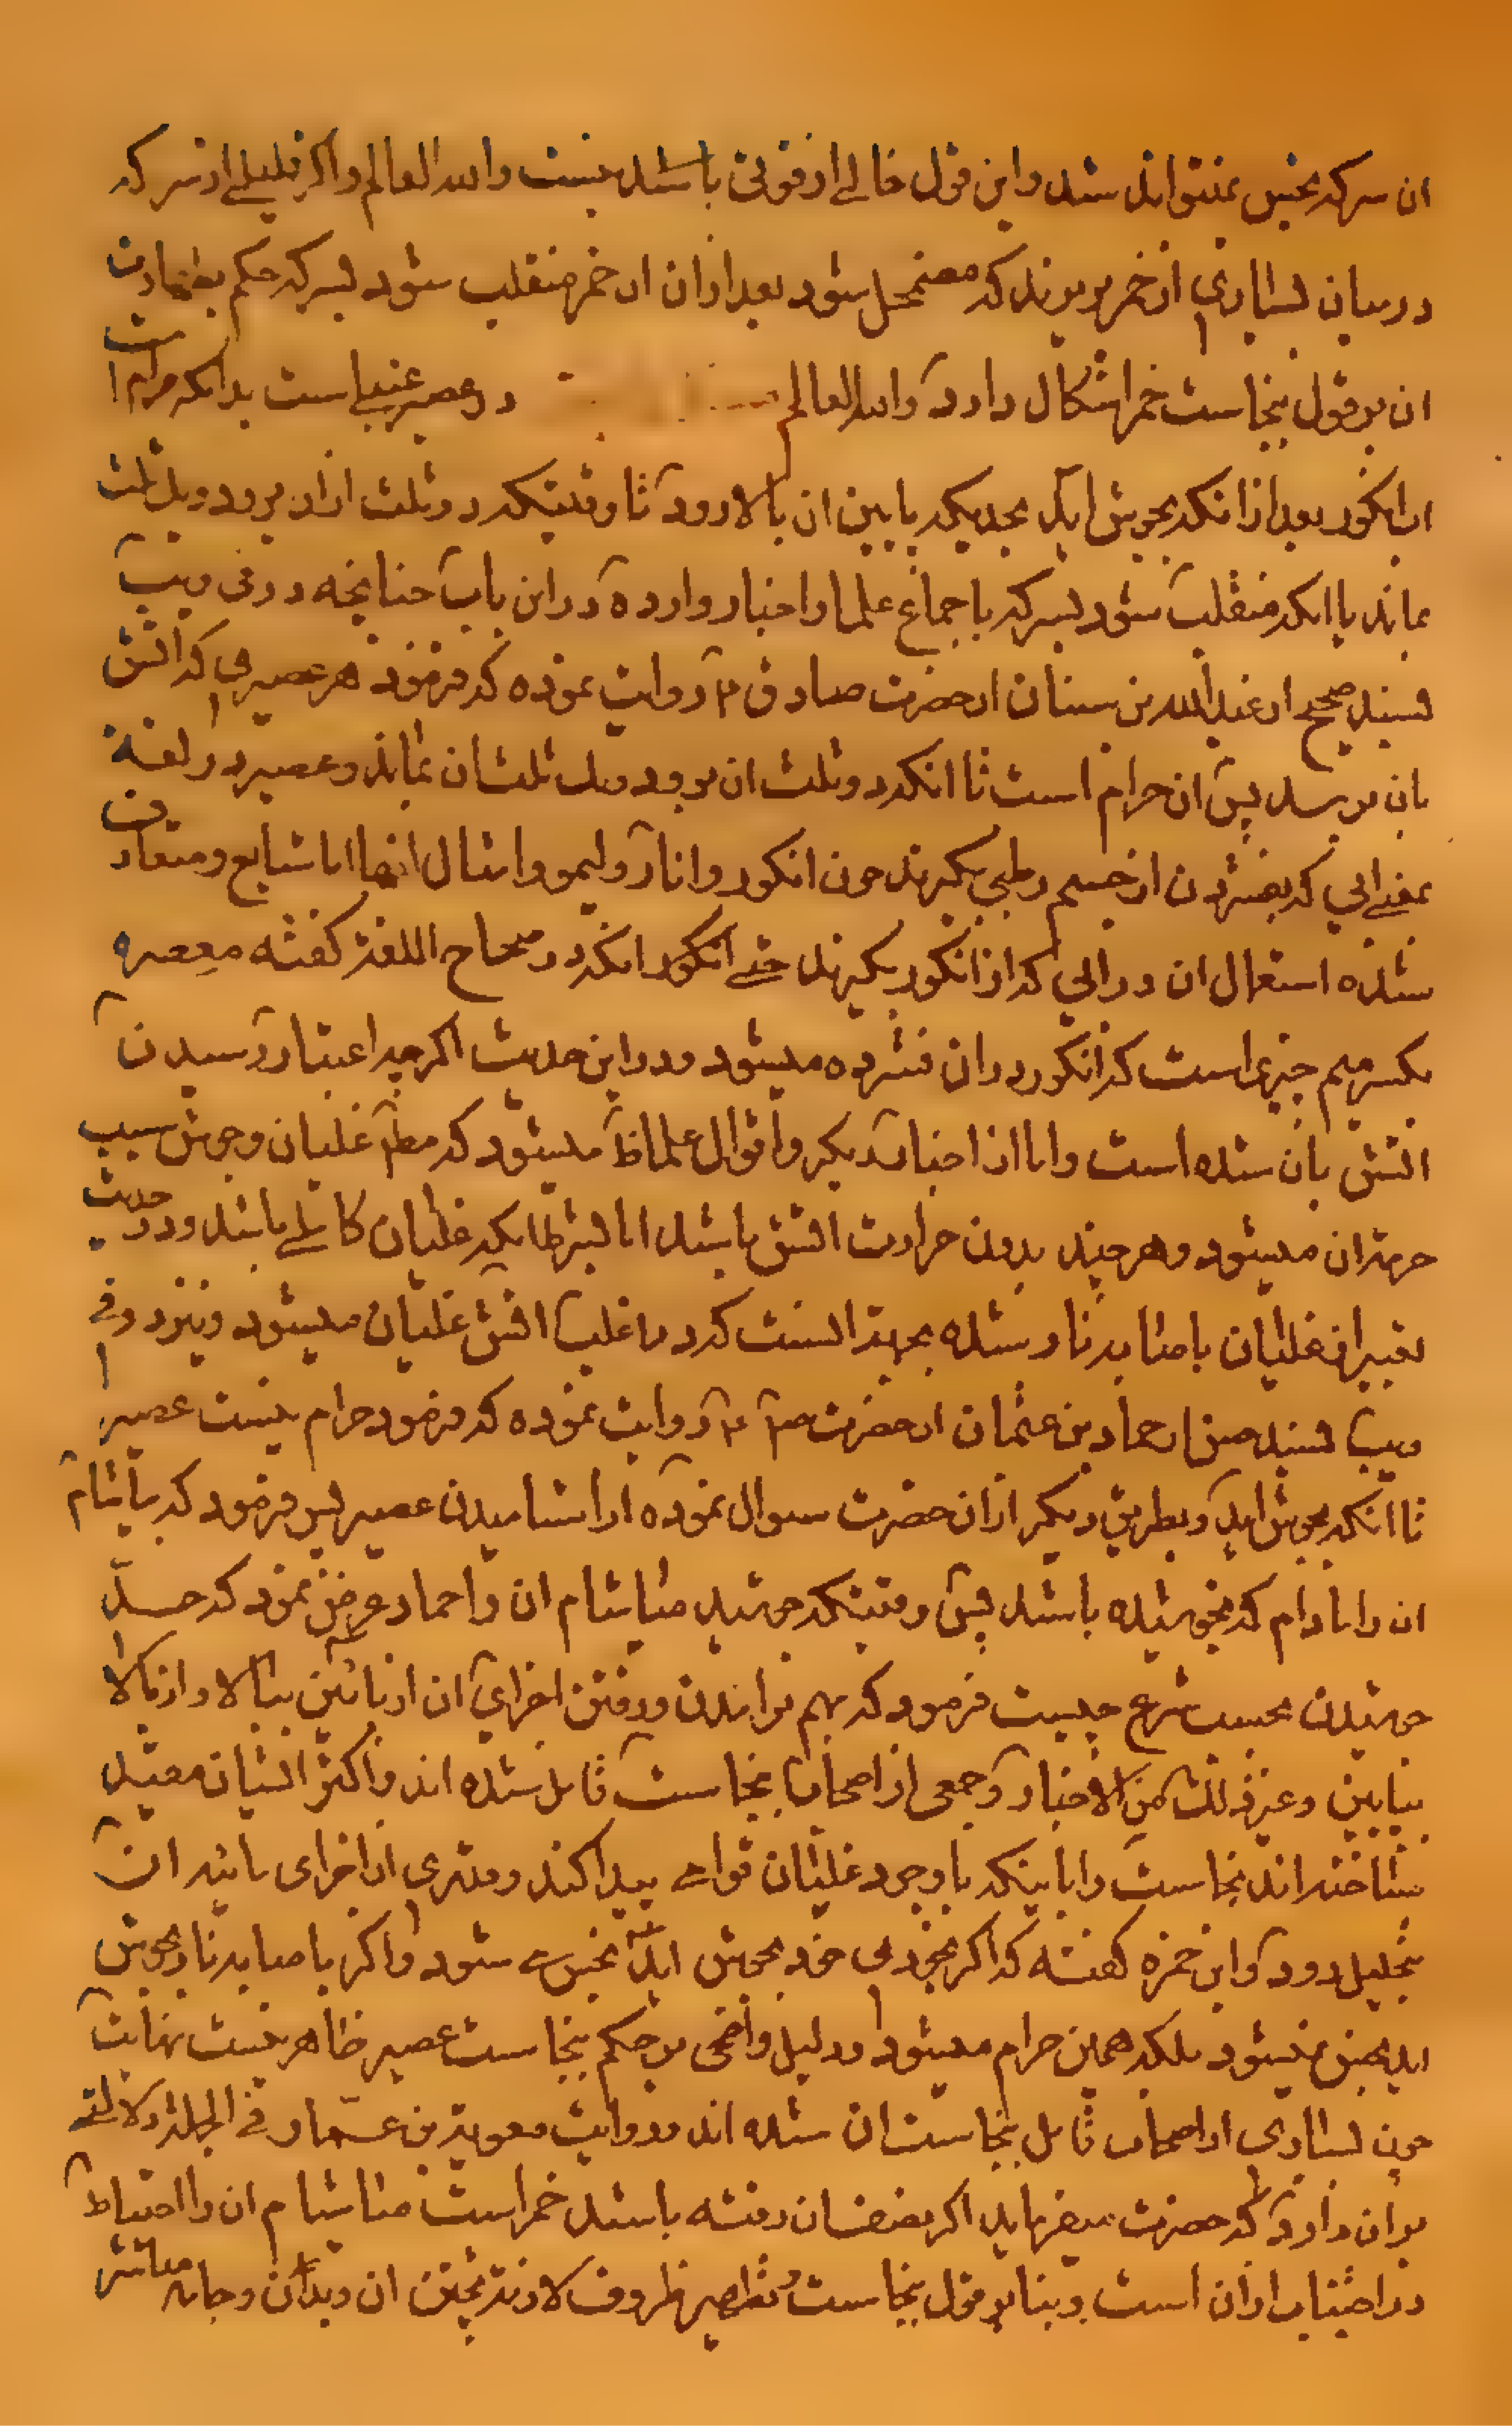 ان سرکه نجس نمیتواند شد و این قول خالی از قوتی باشد نیست والله العالم و اکر قلیلی از سرکه
در میان بسیاری از خمر بریزند که مضمحل شود بعد از ان ان خمر منقلب شود بسرکه حکم بطهارت
ان بر قول بنجاست خمر اشکال دارد والله العالم در عصیر عنبی است بدانکه حرام است
اب انکور بعد از انکه بجوش اید بحدیکه پایین ان بالا رود تا وقتیکه دو ثلث از ان برود و یک ثلث
بماند یا انکه منقلب شود بسرکه باجماع علما و اخبار وارده در این باب چنانچه در فی و یب
بسند صحیح از عبدالله بن سنان از حضرت صادق ۴ روایت نموده که فرمود هر عصیری که اتش
بان برسد پس ان حرام است تا انکه دو ثلث ان برود و یک ثلث ان بماند و عصیر در لغة
بمعنی ابی که بفشردن از جسم رطبی بکیرند چون انکور و انار و لیمو و امثال انها اما شایع و متعارف
شده استعمال ان در ابی که از انکور بکیرند حتی انکه در صحاح اللغة کفته معصره
بکسر میم چیزی است که انکور در ان فشرده میشود و در این حدیث اکرچه اعتبار رسیدن
اتش بان شده است و اما از اخبار دیکر و اقوال علما ظ میشود که مطلق غلیان و جوش سبب
حرمة ان میشود و هر چند بدون حرارت اتش باشد اما بشرطیکه غلیان کاملی باشد و در حدیث
تعبیر از غلیان باصابه نار شده بجهة انست که در اغلب اتش غلیان میشود و نیز در فی
و یب بسند حسن از حماد بن عثمان از حضرت ص ۴ روایت نموده که فرمود حرام نیست عصیر
تا انکه بجوش اید و بطریق دیکر از ان حضرت سوال نموده از اشامیدن عصیر پس فرمود که بیاشام
ان را مادام که نجوشیده باشد پس وقتیکه جوشید میاشام ان را حماد عرض نمود که حد
جوشیدن بحسب شرع چیست فرمود که بهم برامدن و رفتن اجزای ان از پائین ببالا و از بالا
بپایین و غیر ذلک من الاخبار و جمعی از اصحاب بنجاست قایل شده اند و اکثر ایشان مقید
ساخته اند نجاست را باینکه با وجود غلیان قوامی پیدا کند و قدری از اجزای مائیه ان
بتحلیل رود و ابن حمزه کفته که اکر بخودی خود بجوش اید نجس می شود و اکر باصابه نار بجوش
اید نجس نمیشود بلکه همین حرام میشود و دلیل واضحی بر حکم بنجاست عصیر ظاهر نیست نهایت
چون بسیاری از اصحاب قایل بنجاست ان شده اند و روایت معویة بن عمار فی الجملة دلالتی
بران دارد که حضرت میفرماید اکر بنصف ان رفته باشد خمر است میاشام ان را احتیاط
در اجتناب از ان است و بنا بر قول بنجاست تطهیر ظروف لازمه پختن ان و بدن و جامه مباشر